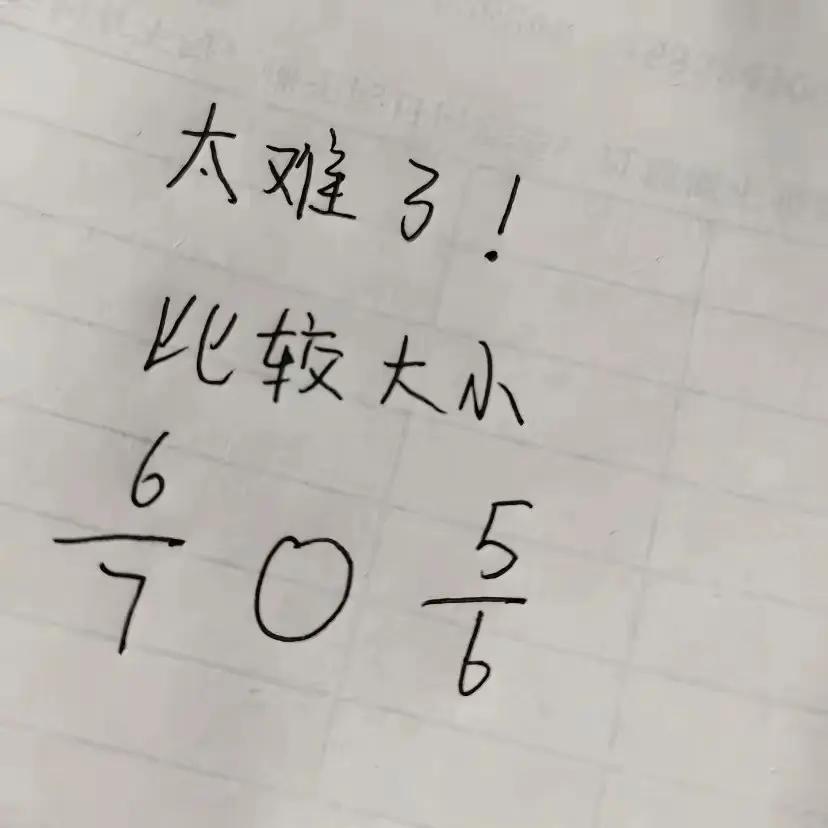 太难了!
比较大小
6/7 ○ 5/6